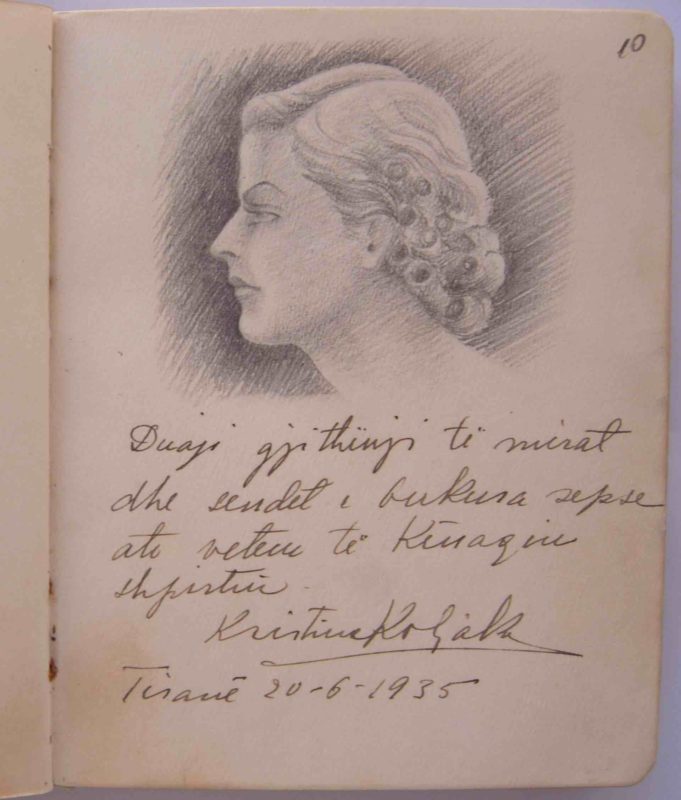 10
Duaji gjithënji të mirat
dhe sendet e bukura sepse
ato vetëm të kënaqin
shpirtin.
Kristina Koljaka
Tiranë 20-6-1935